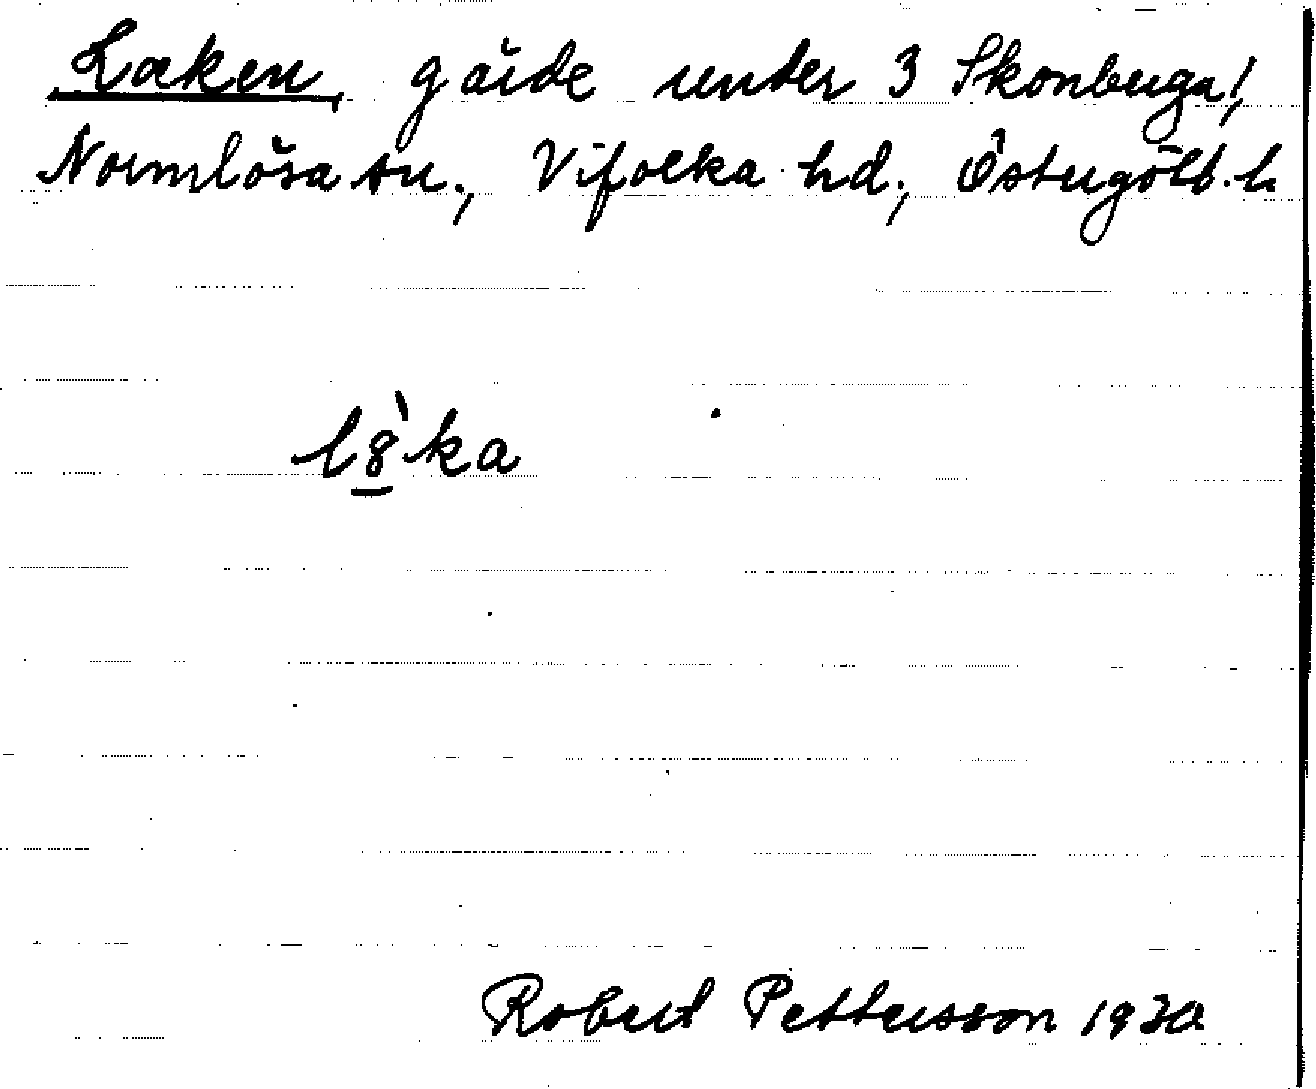 Laken, gärde under 3 Skonberga,
Normlösa sn., Vifolka hd., Östergötl. l.
l8̱̀ka
Robert Pettersson 1930